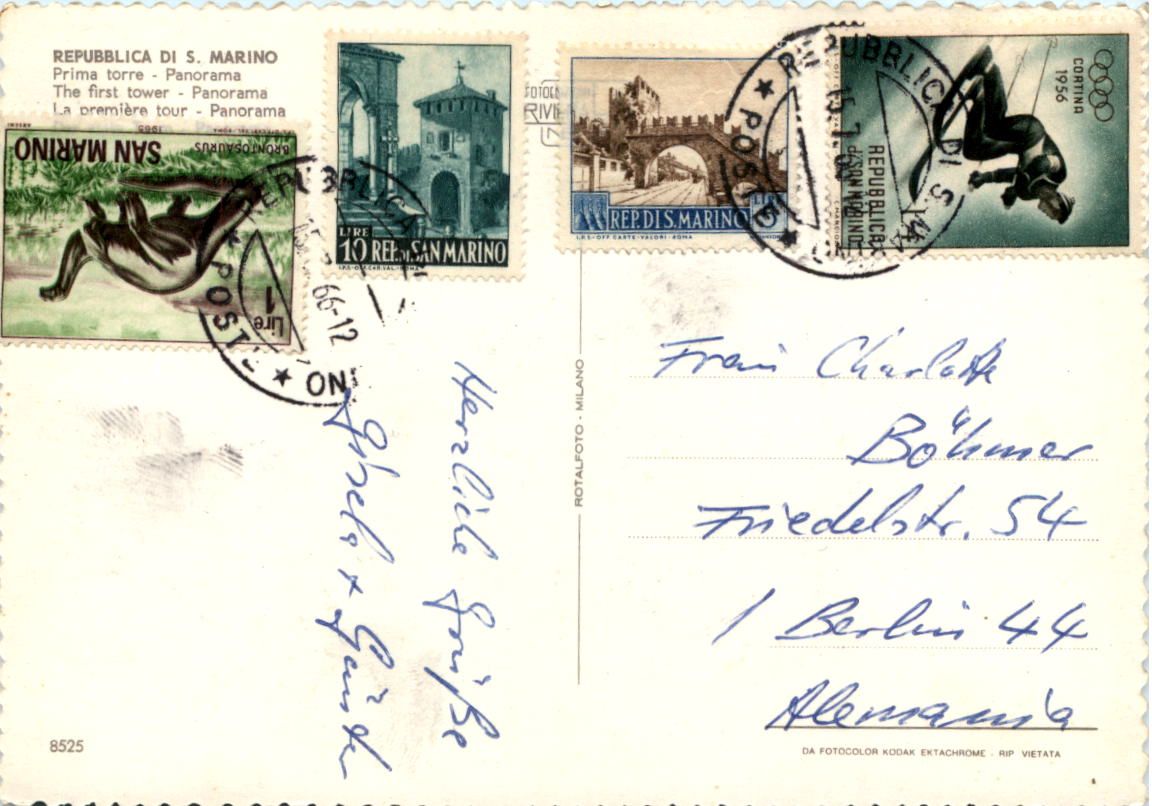 REPUBBLICA DI S. MARINO
Prima torre - Panorama
The first tower - Panorama
La première tour - Panorama
BRONTOSAURUS 1965
SAN MARINO
Lire 1
REPUBBLICA
POSTE
66-12
LIRE
10 REP. DI SAN MARINO
I.P.S.-OFF.CAR.VAL.-ROMA
RIVI
REP. DI S. MARINO
I.P.S.-OFF. CARTE-VALORI-ROMA
REPUBBLICA DI S. MA
POSTE
15.7
CORTINA
1956
REPUBBLICA
DI SAN MARINO
Herzliche Grüße
Gisela + Günter
ROTALFOTO - MILANO
Frau Charlotte
Böhmer
Friedelstr. 54
1 Berlin 44
Alemania
8525
DA FOTOCOLOR KODAK EKTACHROME - RIP VIETATA